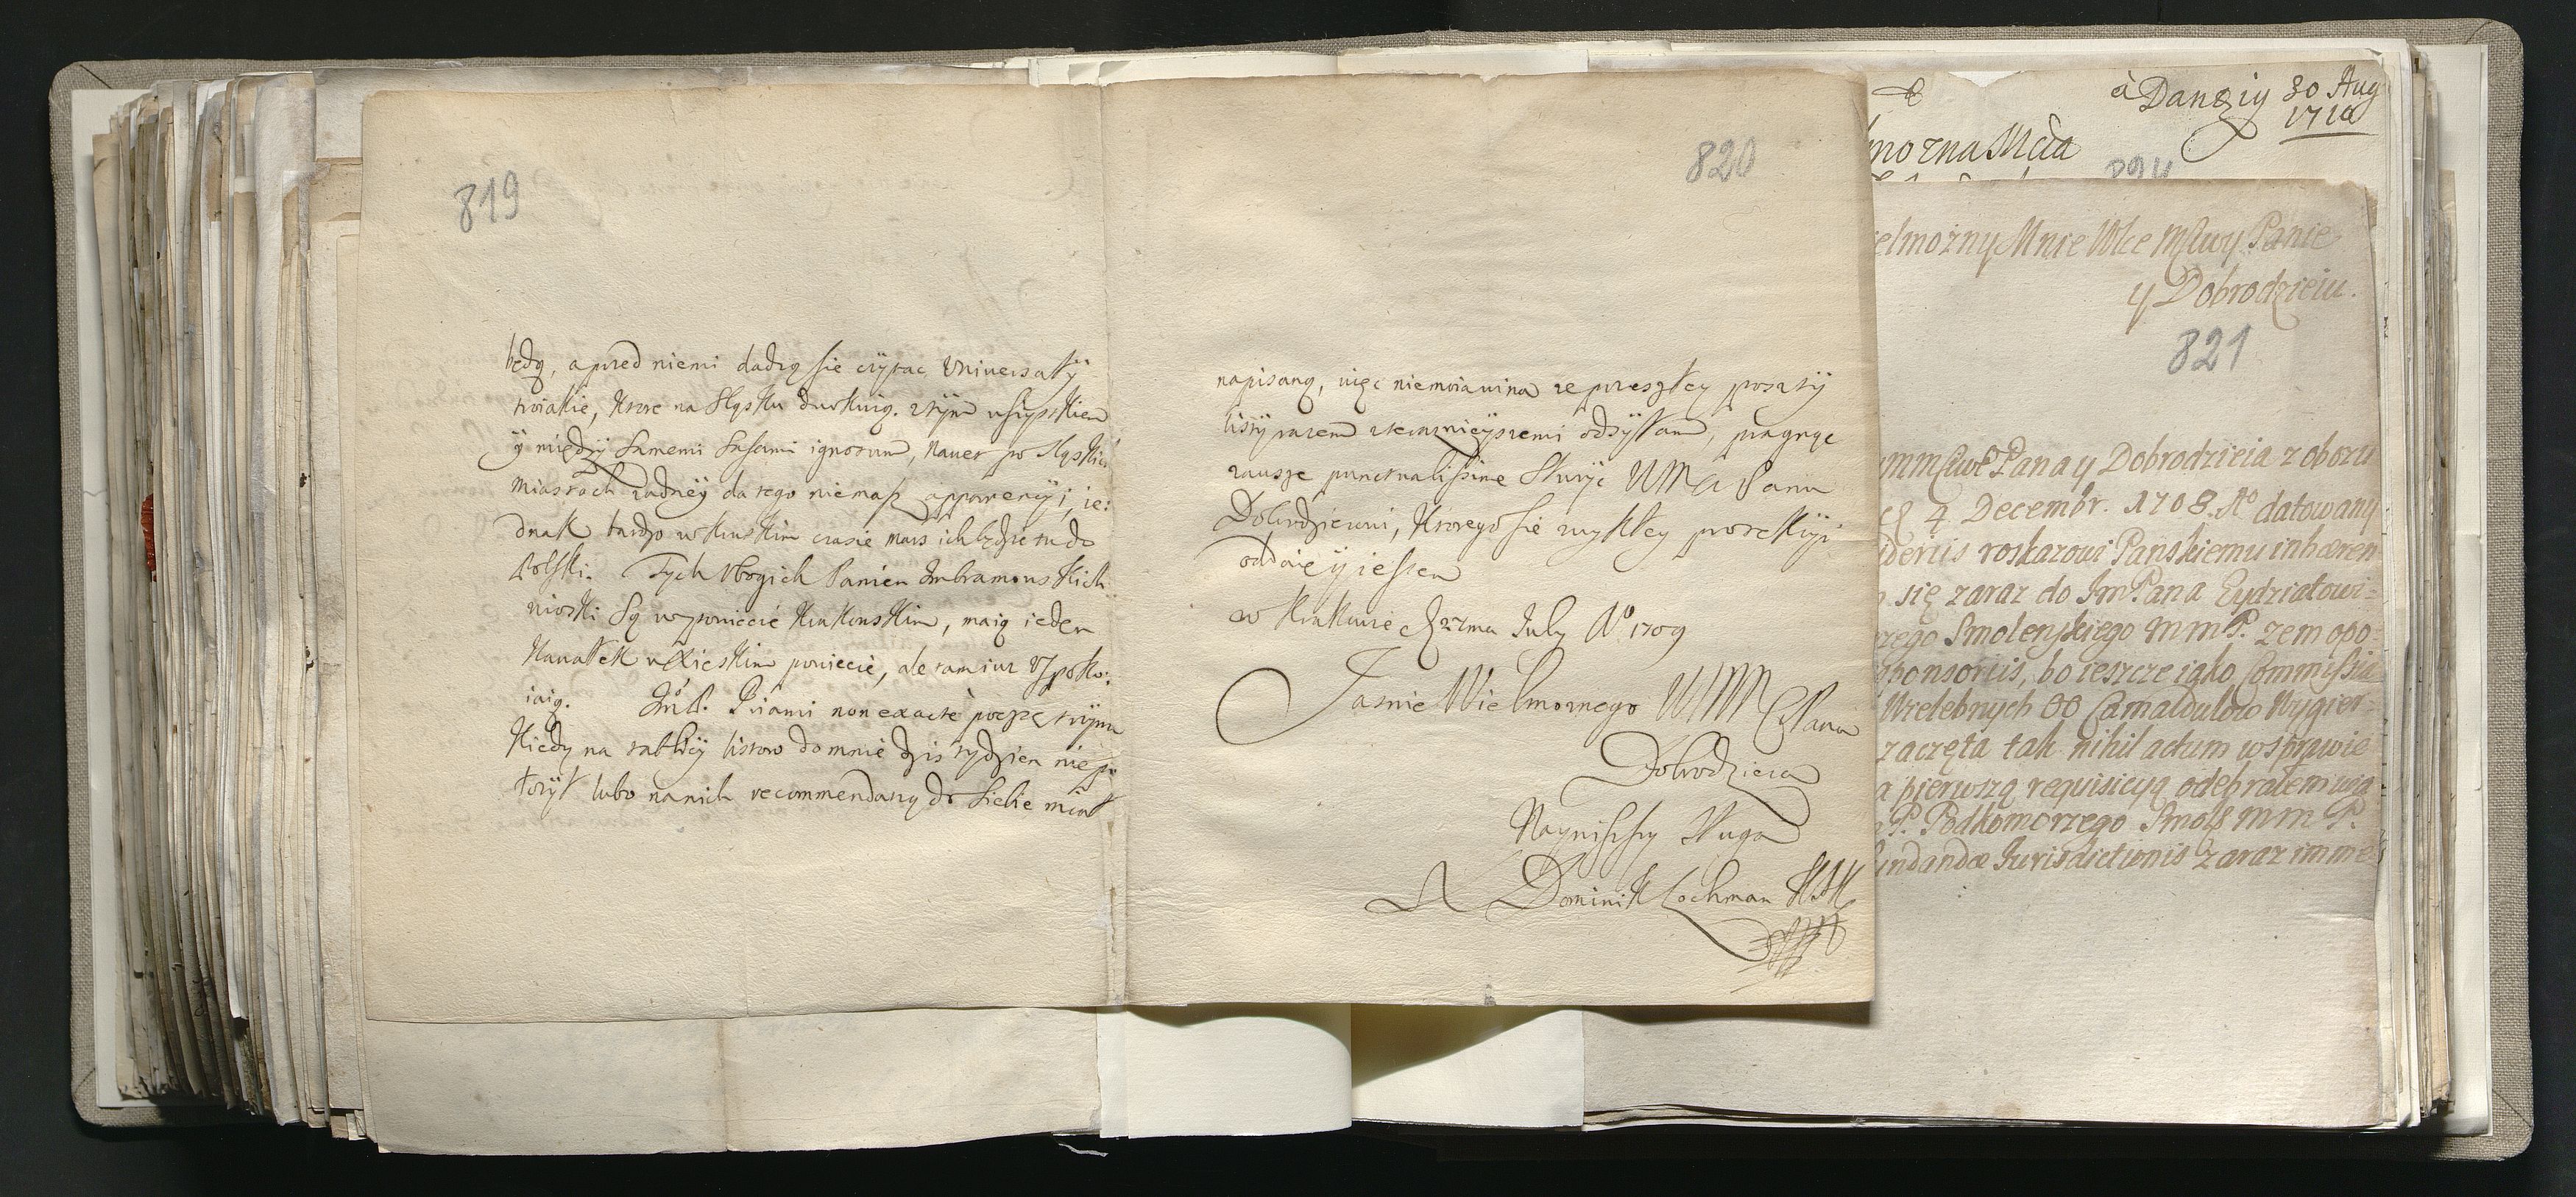 819
będą, a pred niemi dadzą sie czytac Universały
troiakie, ktore na Sląsku drukuią. z tym wszystkiem
ÿ międzÿ Samemi Sasami ignotum, nawet po Sląskich
miastach zadneÿ da tego niemasz apparencÿi, ie:
dnak bardzo w krutkim czasie mars ich będzie tu do
Polski. Tych Ubogich Panien Imbramowskich
wioski Są w powiecie Krakowskim, maią ieden
Kawałek w Xięskim powiecie, ale tam iuz Uspoko:
iaią. Priami non exacte poczte trzÿma
Kiedy na tablicÿ listow do mnie dzis tydzien nie po
łozÿł lubo na nich recommendatią do Siebie miał
820
napisaną, więc nie moia wina ze preszłey pocztÿ
listÿ razem z terazniÿszemi odsÿłam, pragnąc
zawsze punctualissime Służÿc WM Panu
Dobrodzieiowi, Ktorego sie zwykłey protekcÿi
oddaię ÿ iestem
w Krakowie 27ma July Aº 1709
Jasnie Wielmoznego WMM Pana
Dobrodzieia
Naynisszy Sługa
Dominik Lochman
à Danzig 30 Aug
1710
mozna Mcia
elmozny Mnie Wce Mscwy Panie
y Dobrodzieiu.
821
Pana y Dobrodzieia z obozu
4 Decembr. 1708. Aº datowany
roskazowi Panskiemu inhæren
się zaraz do Im Pana Eydziatowi=
rzego Smolenskiego mmP. zem opo=
sponsoriis, bo ieszcze iako Commissia
Wielebnych OO Camaldulow Wygier=
zaczęta tak nihil actum w sprawie
a pierwszą requisicyą odebrałem wia
P. Podkomorzego Smols mm P.
undandæ Iurisdictionis zaraz imme